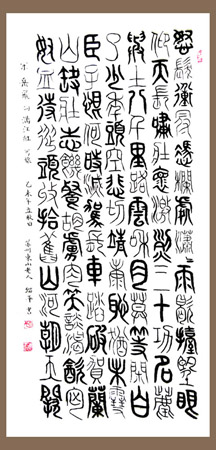 怒髮衝冠憑闌處瀟瀟雨歇擡望眼
仰天長嘯壯懷激烈三十功名塵
與土八千里路雲和月莫等閒白
了少年頭空悲切靖康恥猶未雪
臣子恨何時滅駕長車踏破賀蘭
山缺壯志飢餐胡虜肉笑談渴飲匈
奴血待從頭收拾舊山河朝天闕
宋岳飛詞滿江紅 乙未年立秋日 東山老人 書